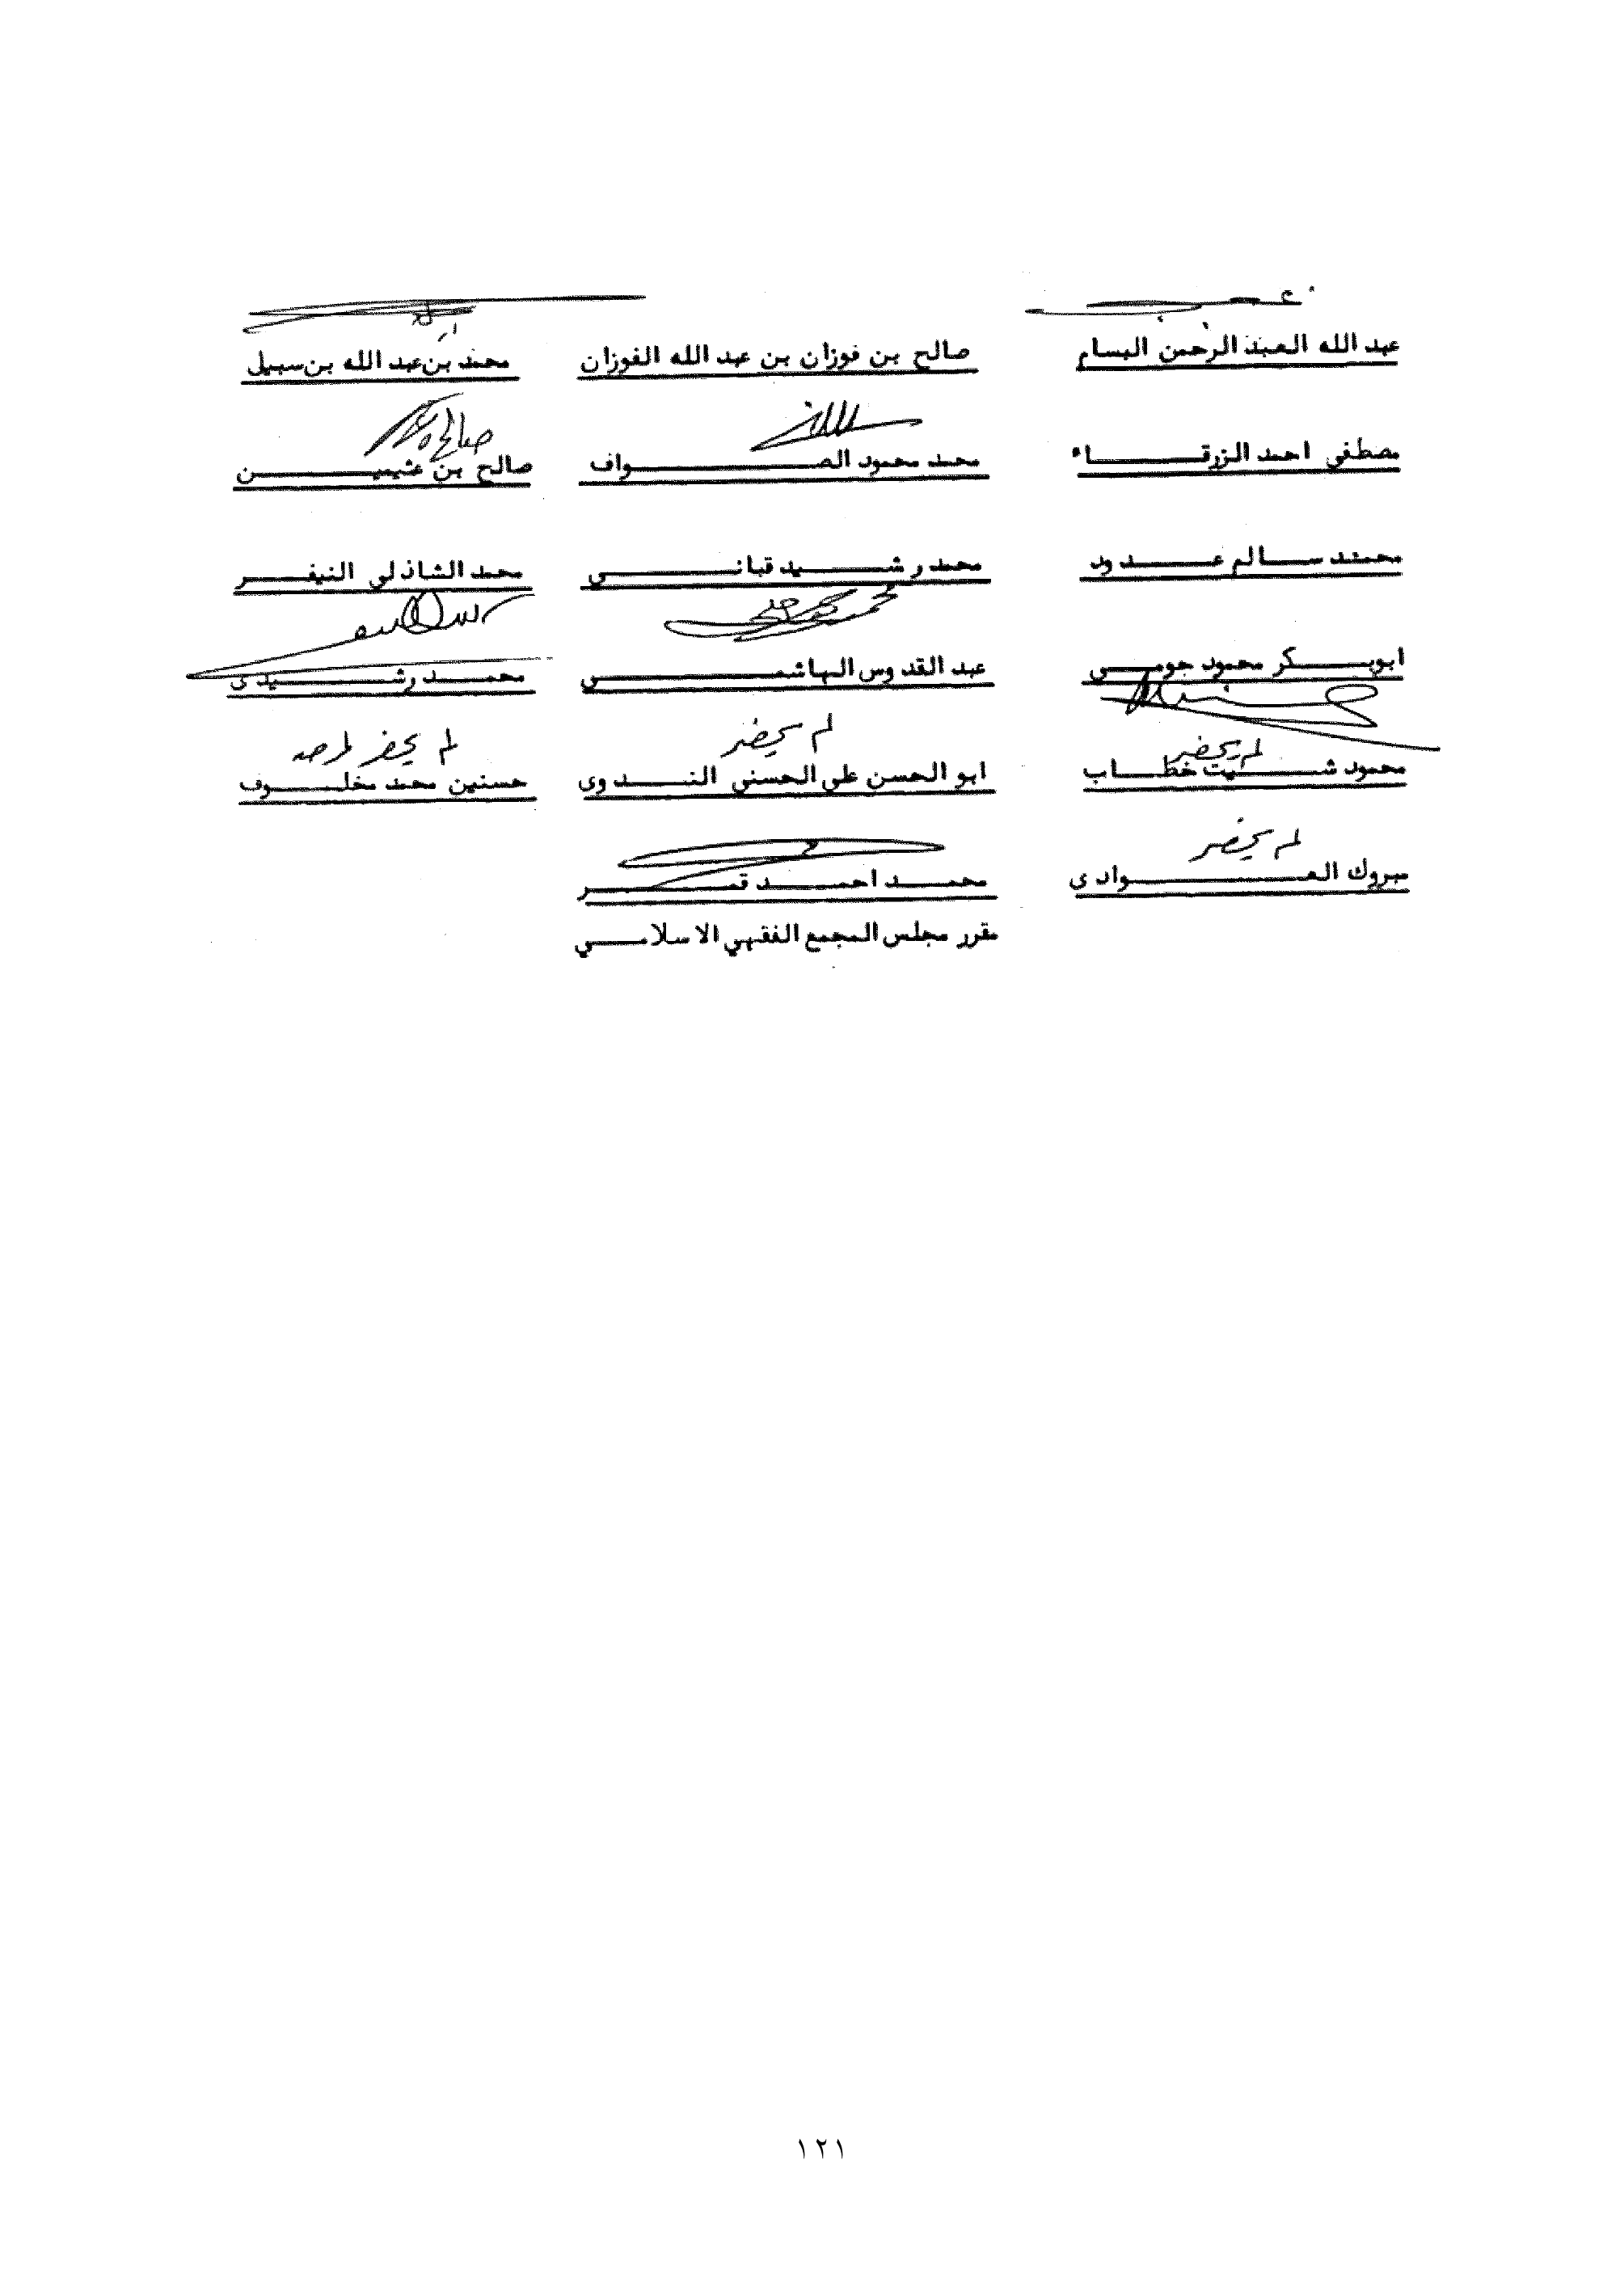 عبد الله العبد الرحمن البسام صالح بن فوزان بن عبد الله الفوزان محمد بن عبد الله بن سبيل
مصطفى احمد الزرقاء محمد محمود الصواف صالح بن عثيمين
محمد سالم عدود محمد رشيد قباني محمد الشاذلي النيفر
ابوبكر محمود جومي عبد القدوس الهاشمي محمد رشيدى
لم يحضر لم يحضر لم يحضر لمرضه
محمود شيت خطاب ابو الحسن علي الحسني الندوى حسنين محمد مخلوف
لم يحضر
مبروك العوادى محمد احمد قمر
مقرر مجلس المجمع الفقهي الاسلامي
١٢١